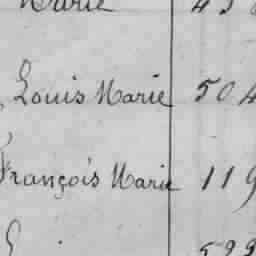 Marie
Louis Marie 504
François Marie 119